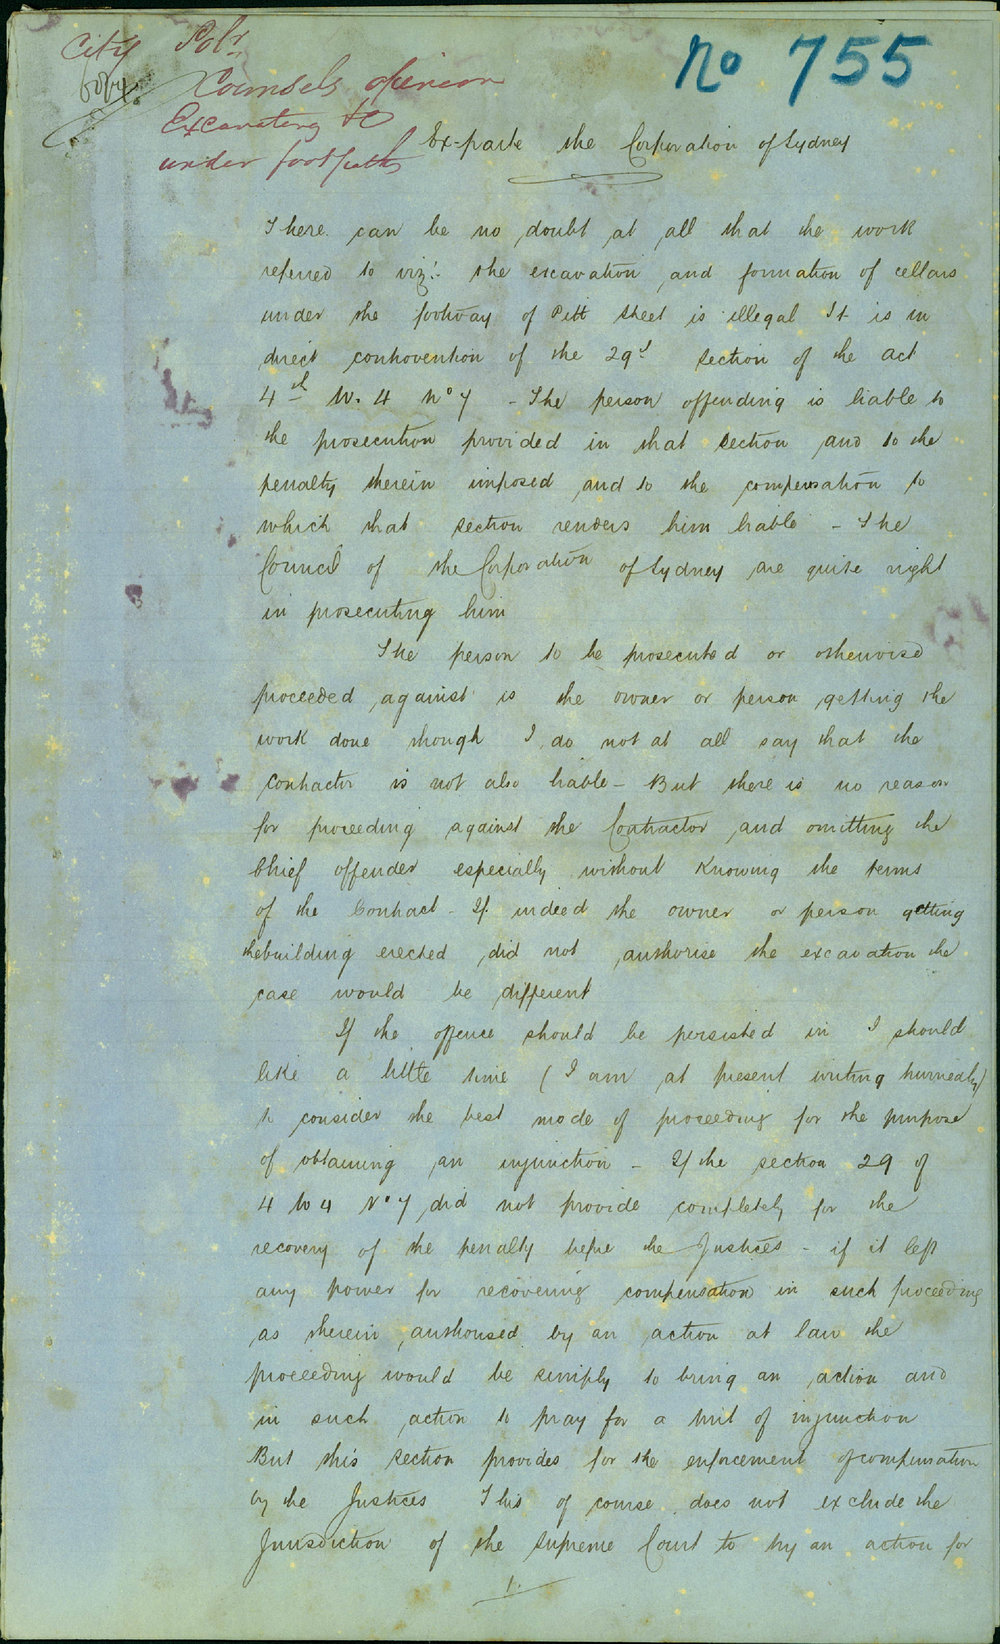 City Solr
Copy
Counsels opinion
Excavating &c
under footpaths
No 755
Ex-parte the Corporation of Sydney
There can be no doubt at all that the work
referred to viz:- the excavation and formation of cellars
under the footway of Pitt Street is illegal It is in
direct contravention of the 29th section of the act
4th W. 4 No 7 - The person offending is liable to
the prosecution provided in that section and to the
penalty therein imposed and to the compensation to
which that section renders him liable - The
Council of the Corporation of Sydney are quite right
in prosecuting him
The person to be prosecuted or otherwise
proceeded against is the owner or person getting the
work done though I do not at all say that the
contractor is not also liable - But there is no reason
for proceeding against the Contractor and omitting the
Chief offender especially without knowing the terms
of the Contract - If indeed the owner or person getting
the building erected did not authorise the excavation the
case would be different
If the offence should be persisted in I should
like a little time (I am at present writing hurriedly)
to consider the best mode of proceeding for the purpose
of obtaining an injunction - If the section 29 of
4 W 4 No 7 did not provide completely for the
recovery of the penalty before the Justices - if it left
any power for recovering compensation in such proceeding
as therein authorised by an action at law the
proceeding would be simply to bring an action and
in such action to pray for a writ of injunction
But this section provides for the enforcement of compensation
by the Justices This of course does not exclude the
Jurisdiction of the Supreme Court to try an action for
1.